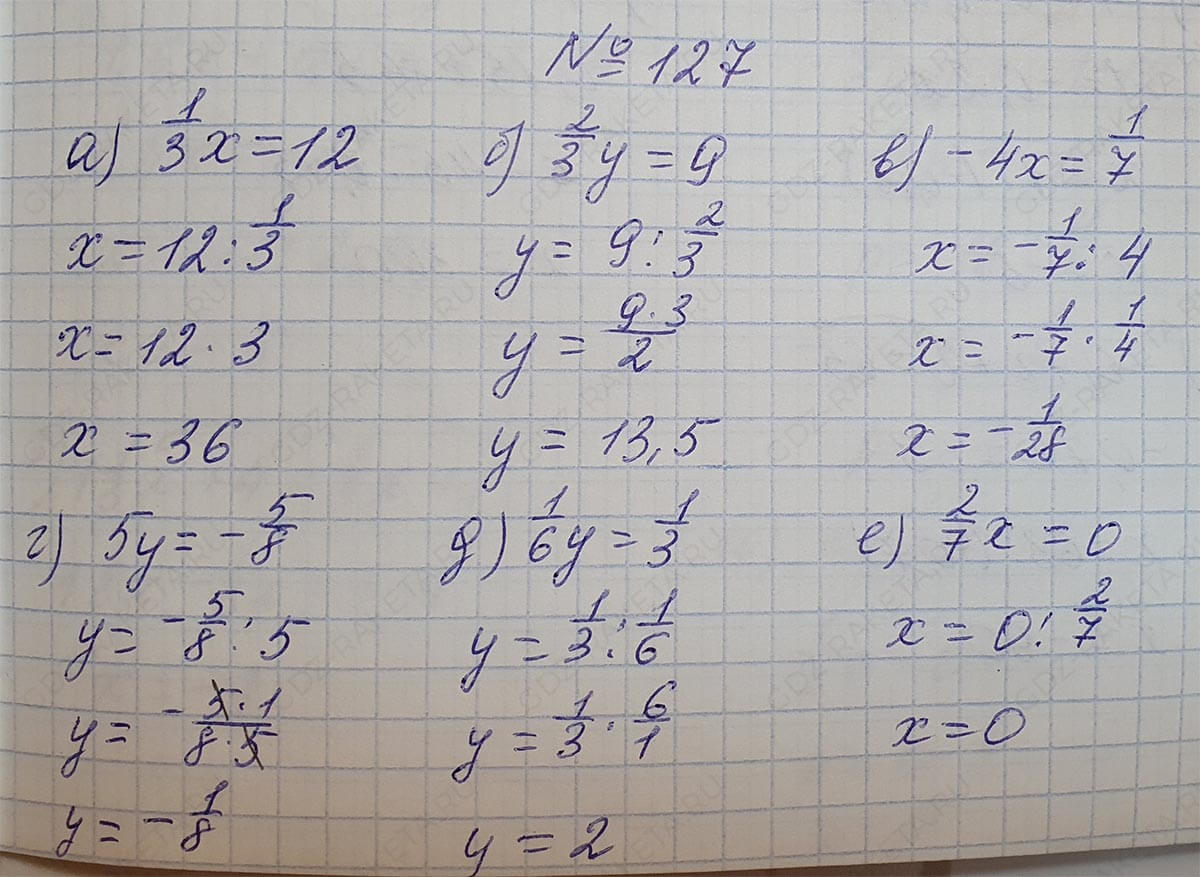 № 127
а) 1/3 x = 12
x = 12 : 1/3
x = 12 · 3
x = 36
б) 2/3 y = 9
y = 9 : 2/3
y = 9·3/2
y = 13,5
в) -4x = 1/7
x = -1/7 : 4
x = -1/7 · 1/4
x = -1/28
г) 5y = -5/8
y = -5/8 : 5
y = -5·1/8·5
y = -1/8
д) 1/6 y = 1/3
y = 1/3 : 1/6
y = 1/3 · 6/1
y = 2
е) 2/7 x = 0
x = 0 : 2/7
x = 0
GDZ-RAKETA.RU